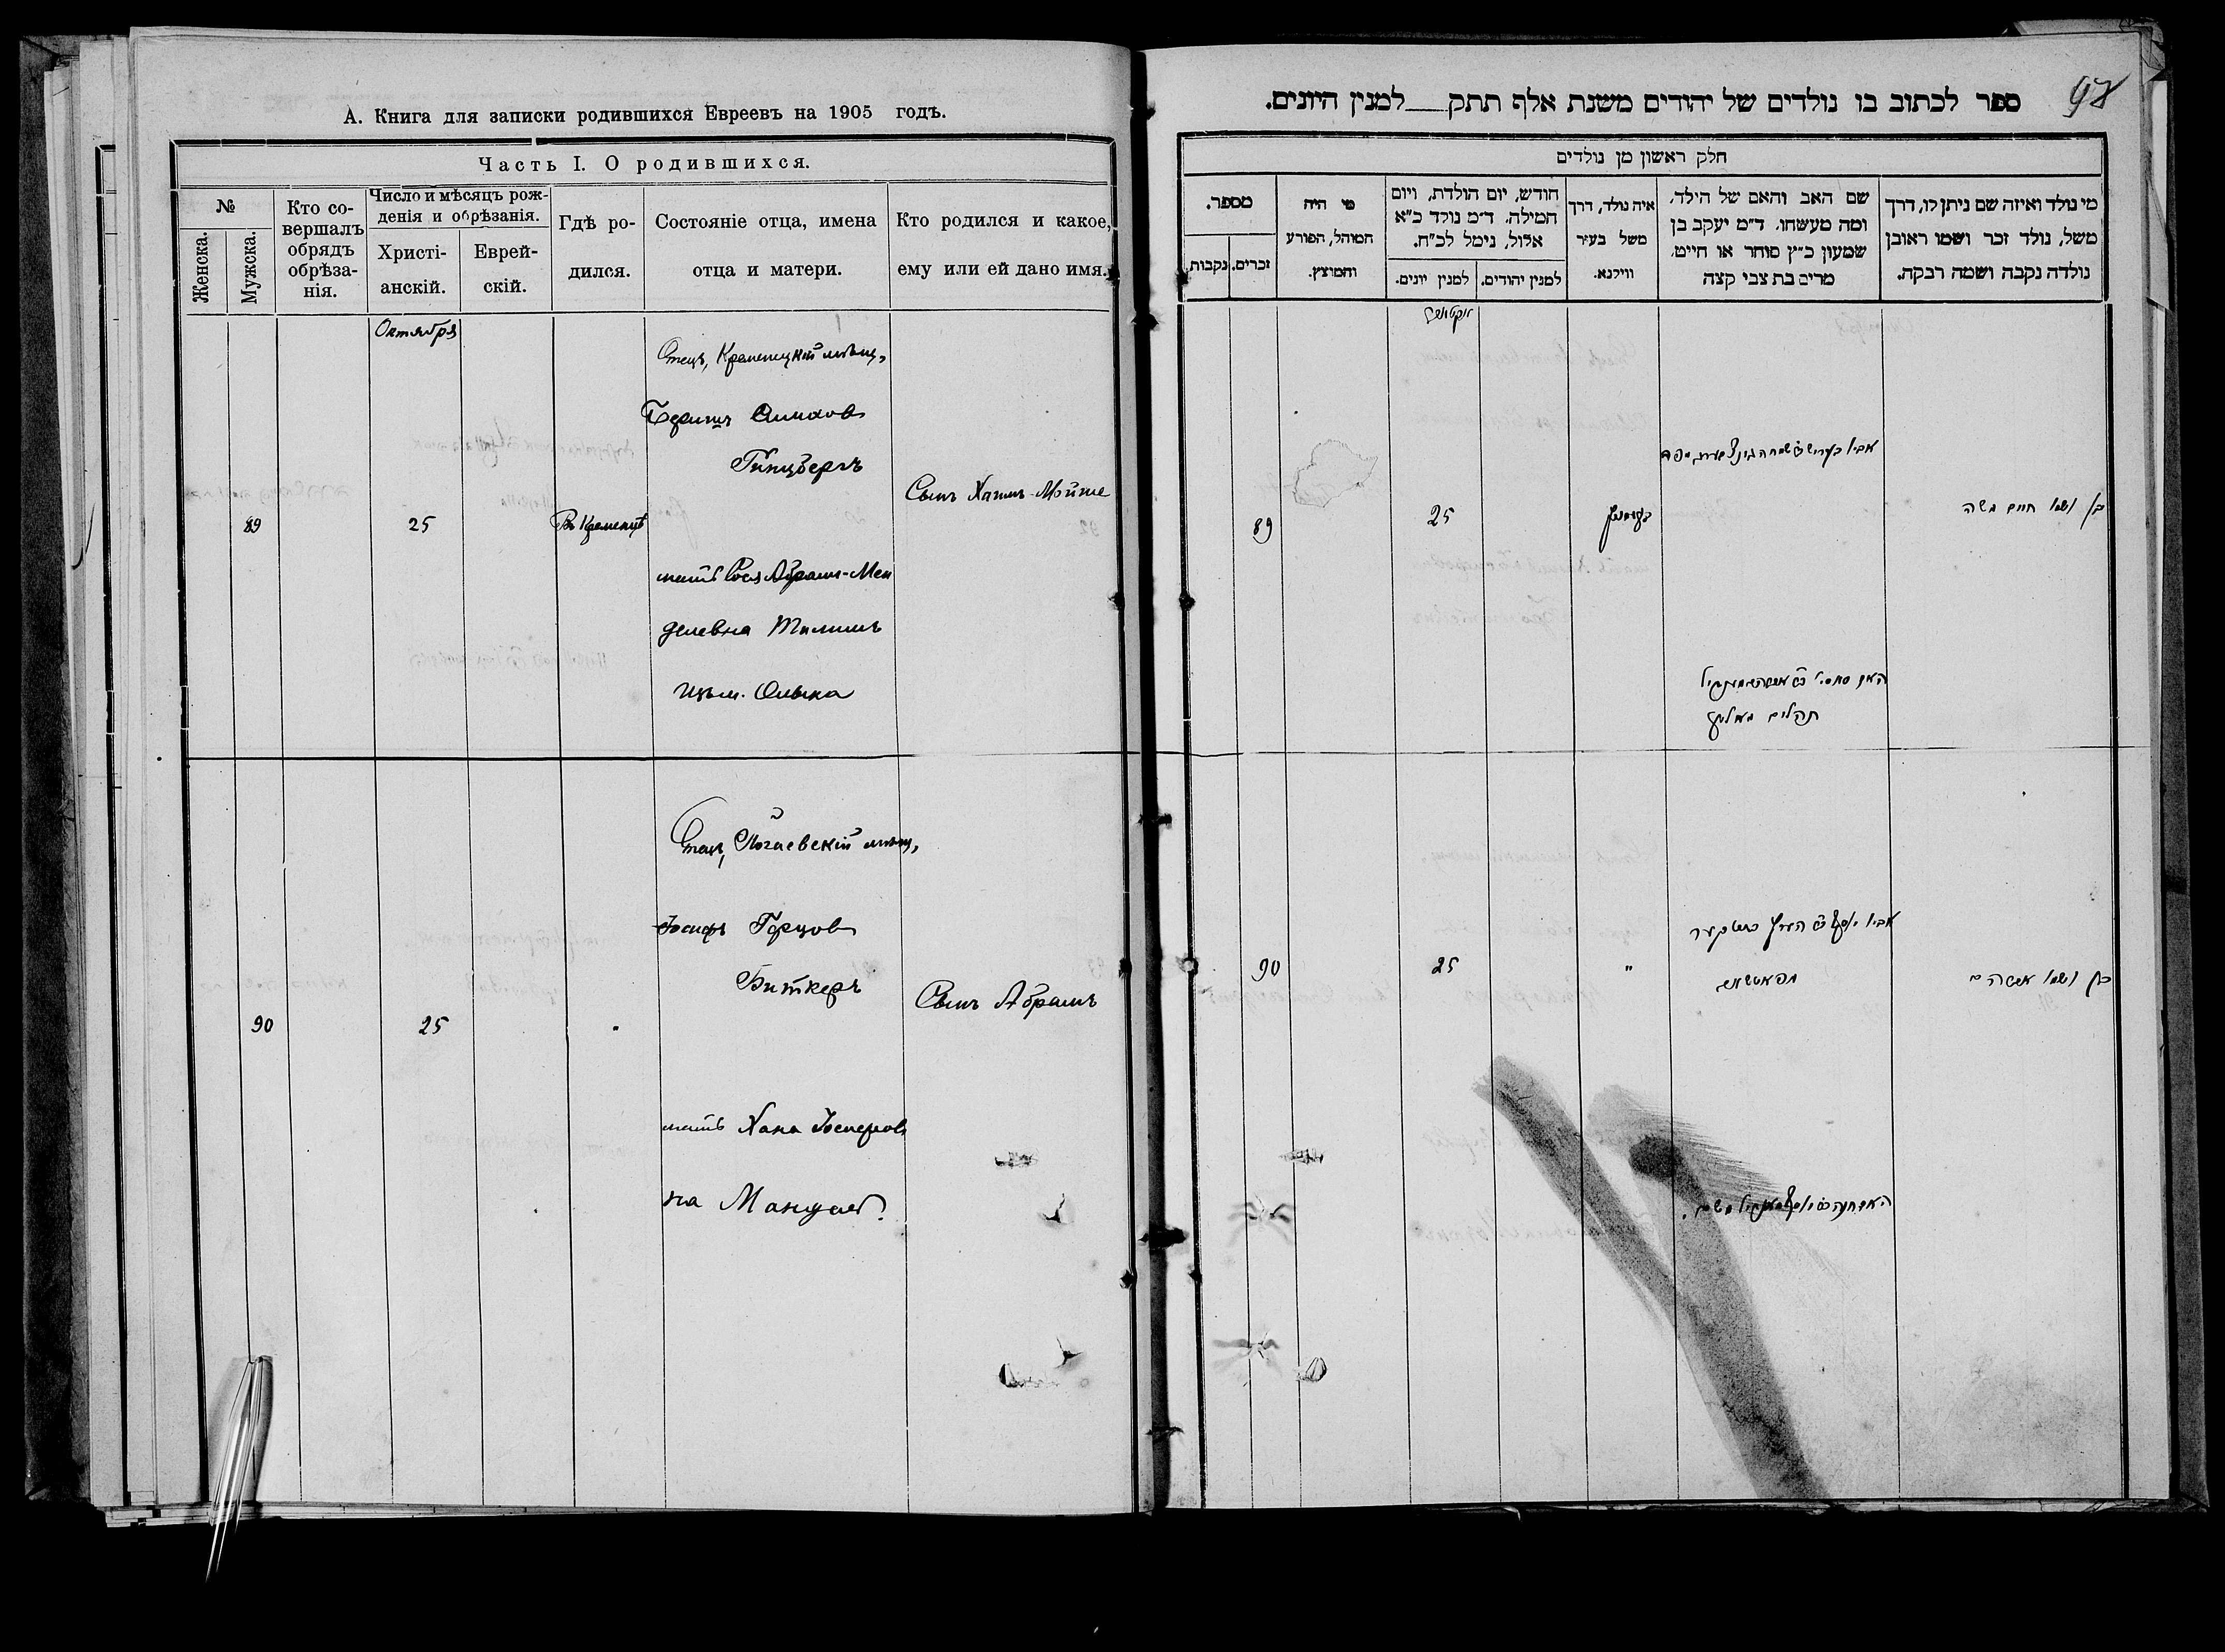 А. Книга для записки родившихся Евреевъ на 1905 годъ.
Часть I. О родившихся.
№
Женска.
Мужска.
Кто со-
вершалъ
обрядъ
обрѣза-
нія.
Число и мѣсяцъ рож-
денія и обрѣзанія.
Христі-
анскій.
Еврей-
скій.
Гдѣ ро-
дился.
Состояніе отца, имена
отца и матери.
Кто родился и какое,
ему или ей дано имя.
Октября
89
25
Въ Кременцѣ
Отецъ, Кременецкій мѣщ.
Беришъ Симхов
Гинцбергъ
мать Рося Абрамъ-Мен
делевна Тилимъ
Сынъ Хаимъ-Мойше
90
25
Отецъ, Почаевскій мѣщ.
Іосифъ Герцов
Биткеръ
мать Хана Іосифов
на
Сынъ Абрамъ
98
ספר לכתוב בו נולדים של יהודים משנת אלף תתק למנין היונים.
חלק ראשון מן נולדים
מספר.
זכרים.
נקבות.
מי היה
המוהל, הפורע
והמוצץ.
חודש, יום הולדת, ויום
המילה. ד״מ נולד כ״א
אלול, נימל לכ״ח.
למנין יונים.
למנין יהודים.
איה נולד, דרך
משל בעיר
ווילנא.
שם האב והאם של הילד,
ומה מעשהו. ד״מ יעקב בן
שמעון כ״ץ סוחר או חייט,
מרים בת צבי קצה
מי נולד ואיזה שם ניתן לו, דרך
משל, נולד זכר ושמו ראובן
נולדה נקבה ושמה רבקה.
89
25
בן ושמו חיים משה
תהלים
90
25
"
בן ושמו אברהם